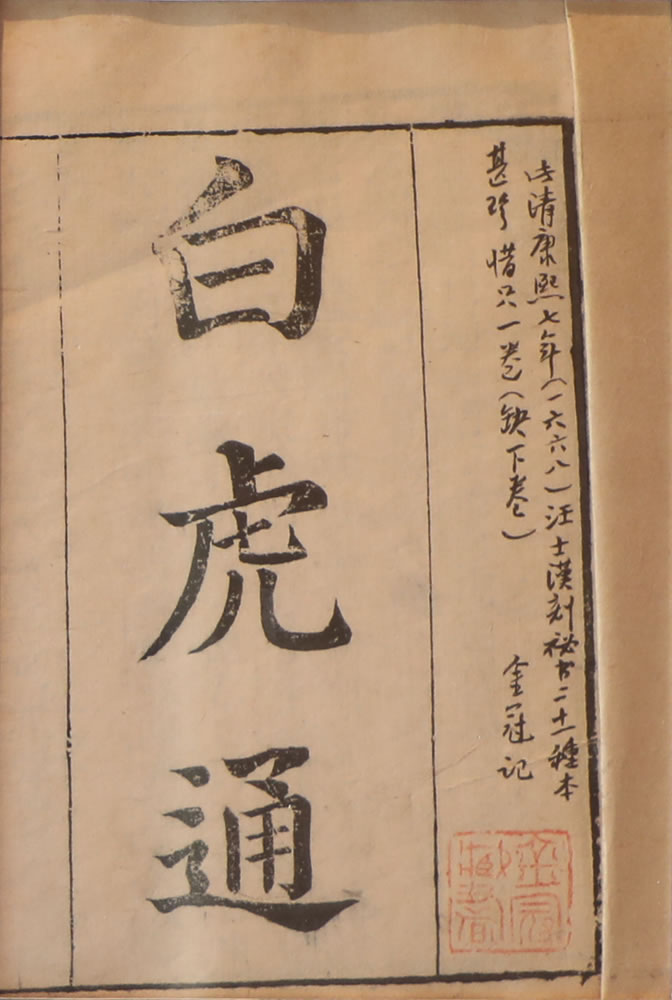 此清康熙七年（一六六八）汪士漢刻祕书二十一種本
甚珍惜只一卷（缺下卷）
金冠記
金冠藏書
白虎通